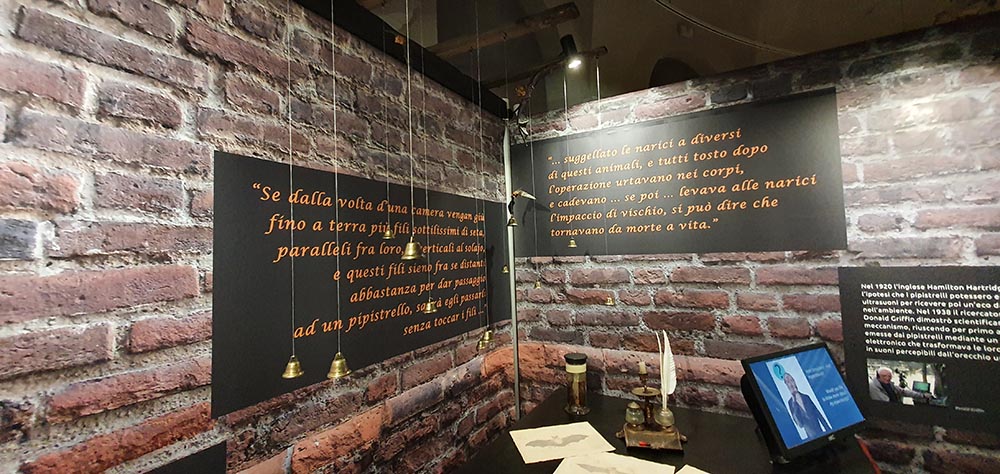 “Se dalla volta d'una camera vengan giù
fino a terra più fili sottilissimi di seta,
paralleli fra loro, verticali al solajo,
e questi fili sieno fra se distanti
abbastanza per dar passaggio
ad un pipistrello, saprà egli passare
senza toccar i fili ...
“... suggellato le narici a diversi
di questi animali, e tutti tosto dopo
l'operazione urtavano nei corpi,
e cadevano ... se poi ... levava alle narici
l'impaccio di vischio, si può dire che
tornavano da morte a vita.”
Nel 1920 l'inglese Hamilton Hartrid
l'ipotesi che i pipistrelli potessero e
ultrasuoni per ricevere poi un'eco d
nell'ambiente. Nel 1938 il ricercato
Donald Griffin dimostrò scientifica
meccanismo, riuscendo per primo a
emesse dai pipistrelli mediante un
elettronico che trasformava le loro
in suoni percepibili dall'orecchio u
Donald Griffin